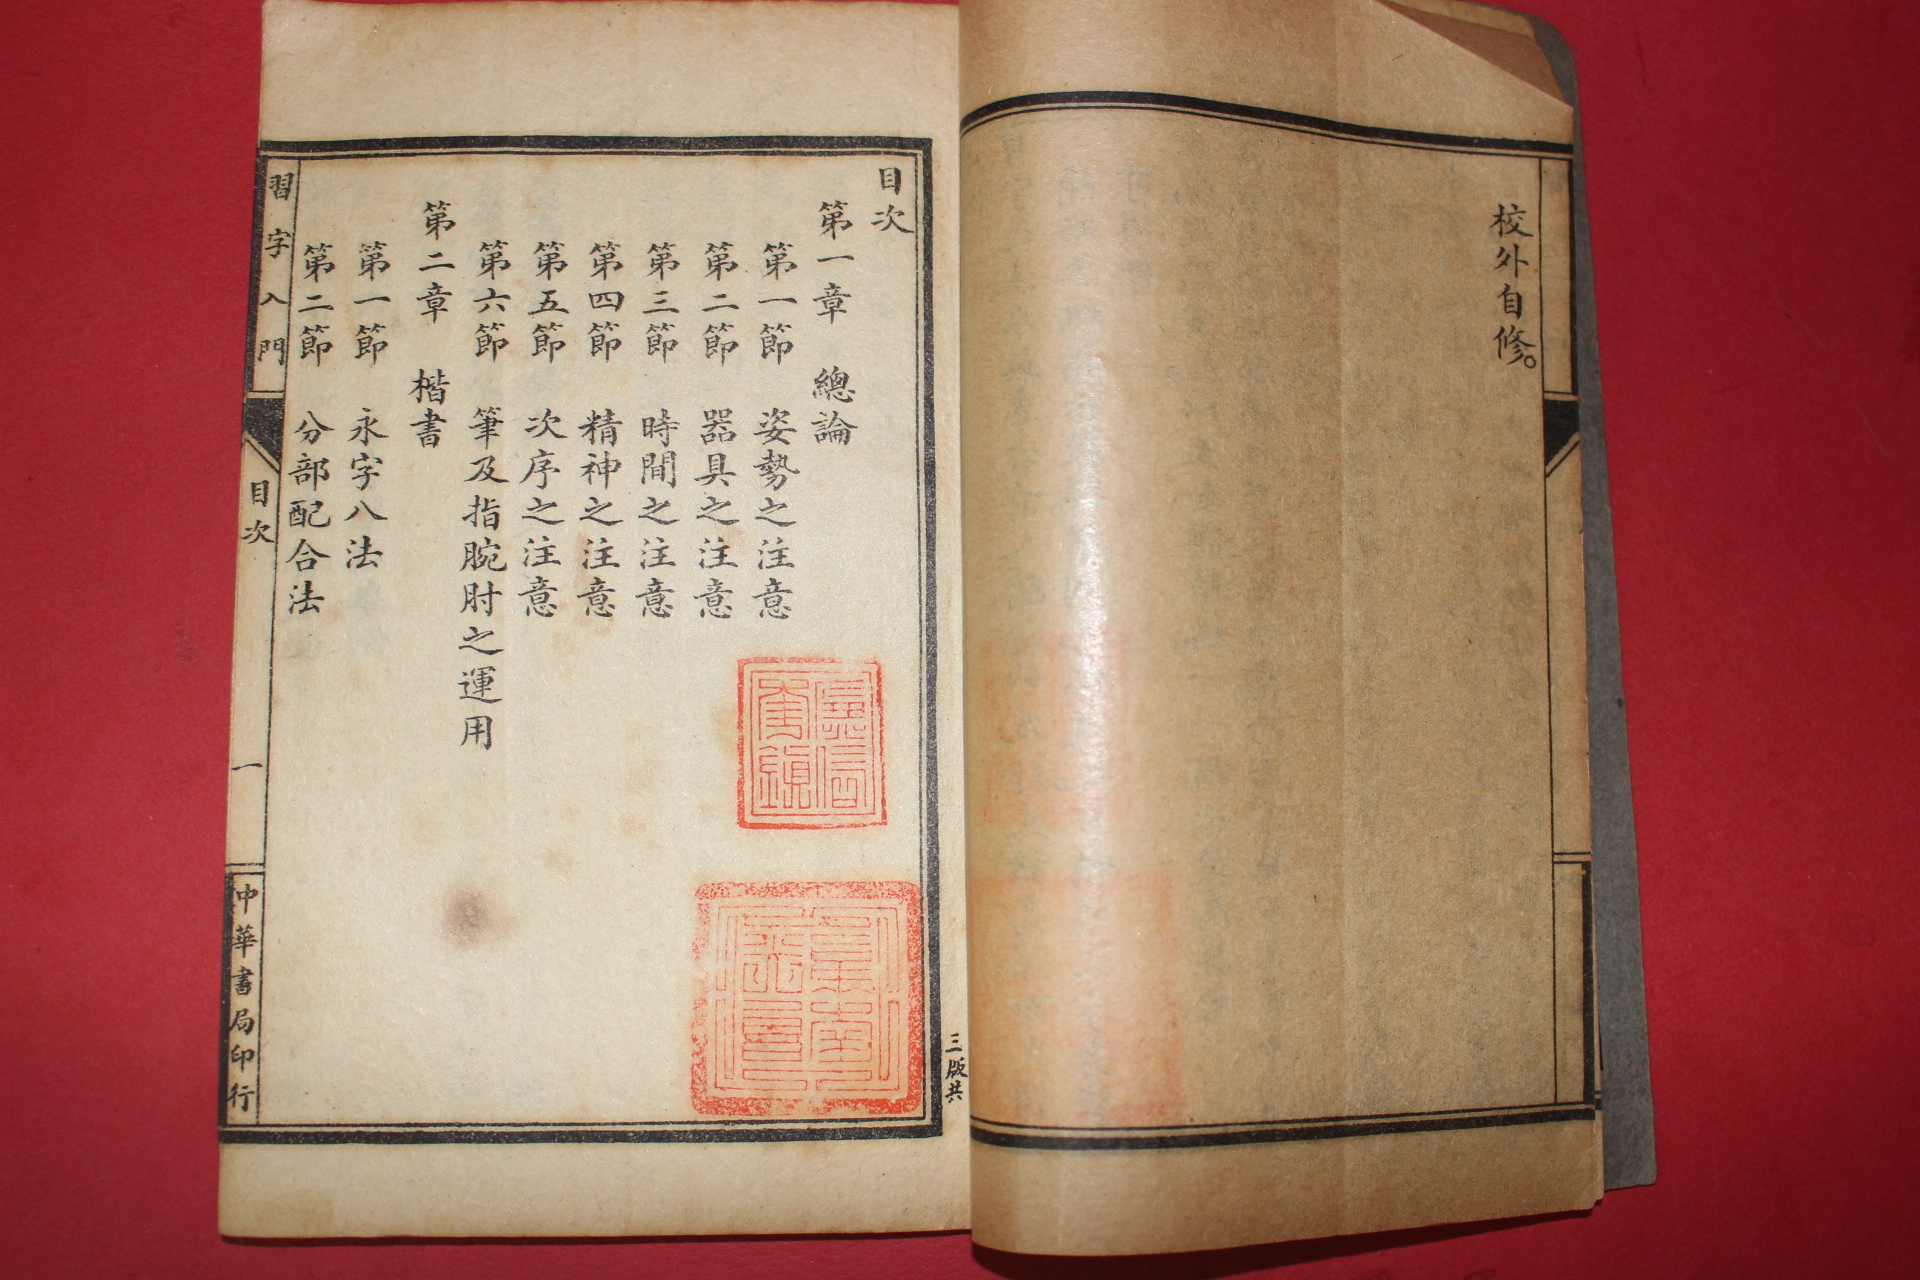 校外自修。
目次
第一章　總論
第一節　姿勢之注意
第二節　器具之注意
第三節　時間之注意
第四節　精神之注意
第五節　次序之注意
第六節　筆及指腕肘之運用
第二章　楷書
第一節　永字八法
第二節　分部配合法
習字入門
目次
一
中華書局印行
三版共